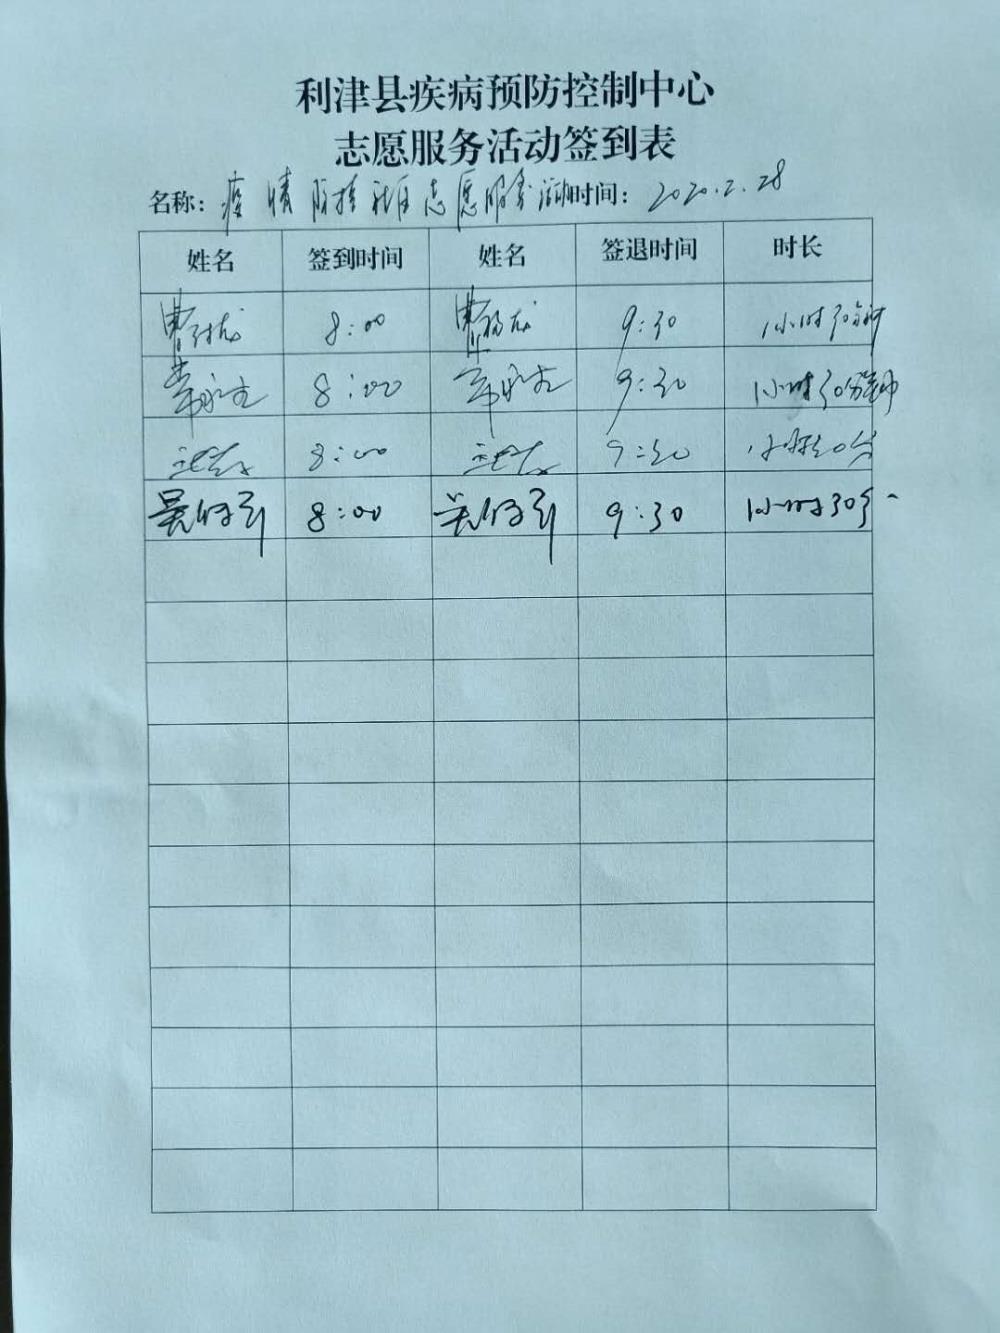 利津县疾病预防控制中心
志愿服务活动签到表
名称：疫情防控社区志愿服务活动时间：2020.2.28
姓名 签到时间 姓名 签退时间 时长
曹 8:00 曹 9:30 1小时30分钟
8:00 9:30 1小时30分钟
8:00 9:30 1小时30分
吴 8:00 吴 9:30 1小时30分